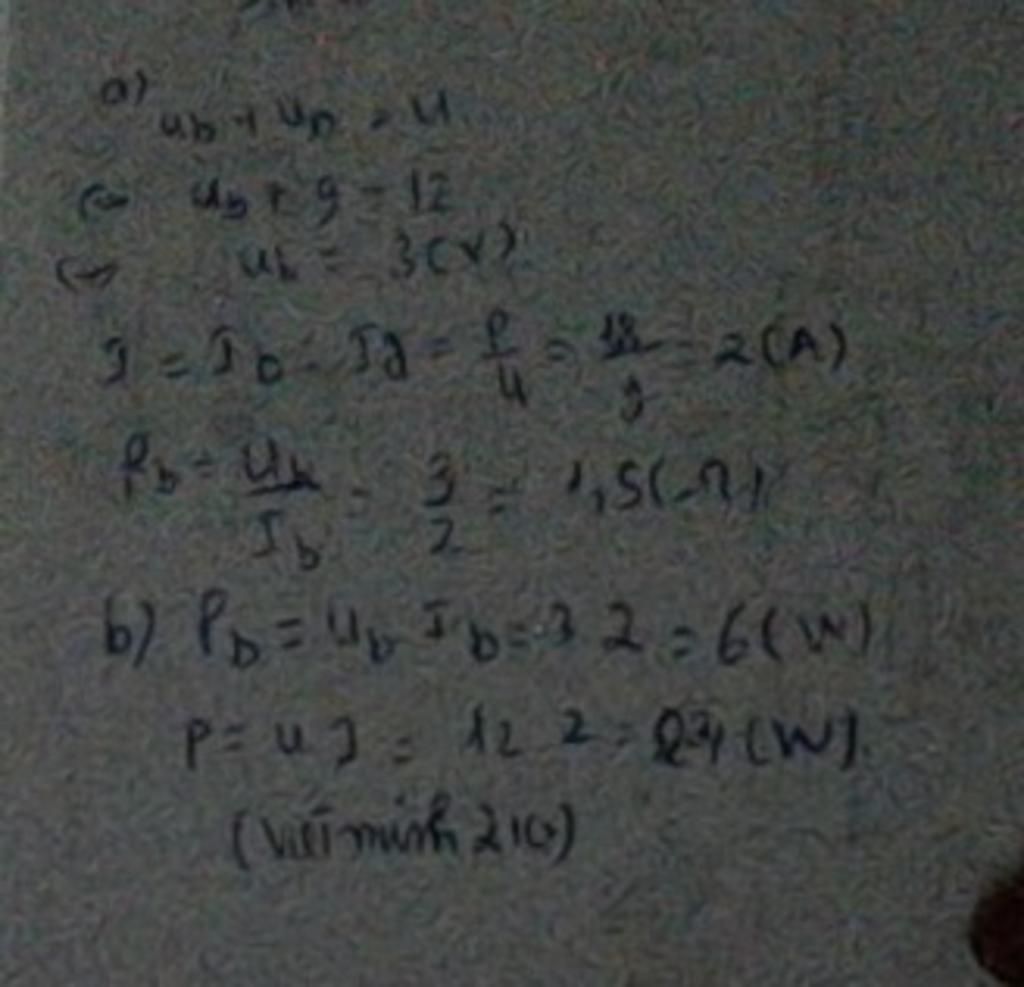 a)
U_b + U_D = U
<=> U_b + 9 = 12
<=> U_b = 3(V)
I = I_b = I_đ = P/U = 18/9 = 2(A)
R_b = U_b/I_b = 3/2 = 1,5(Ω)
b) P_b = U_b I_b = 3 2 = 6(W)
P = U I = 12 2 = 24 (W).